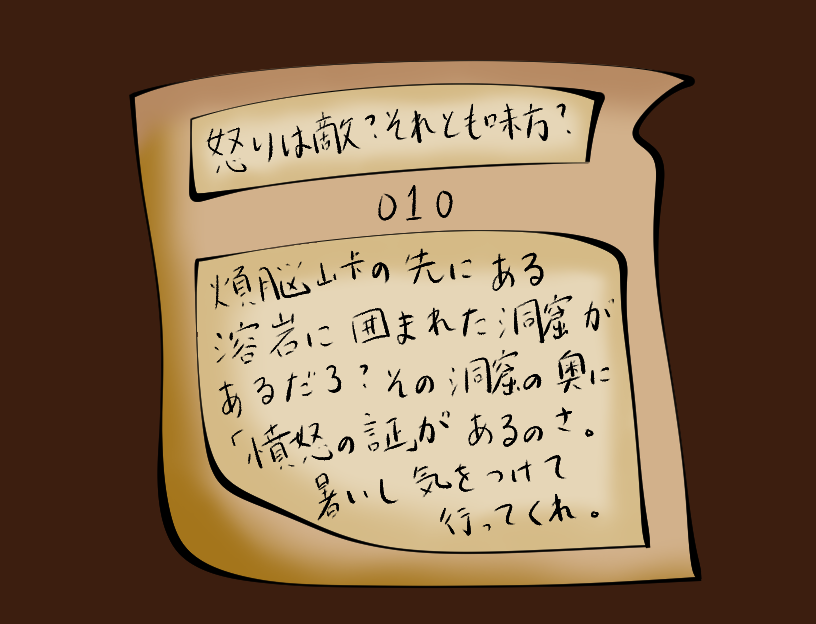 怒りは敵？それとも味方？
010
煩脳山峠の先にある
溶岩に囲まれた洞窟が
あるだろ？その洞窟の奥に
「憤怒の証」があるのさ。
暑いし気をつけて
行ってくれ。